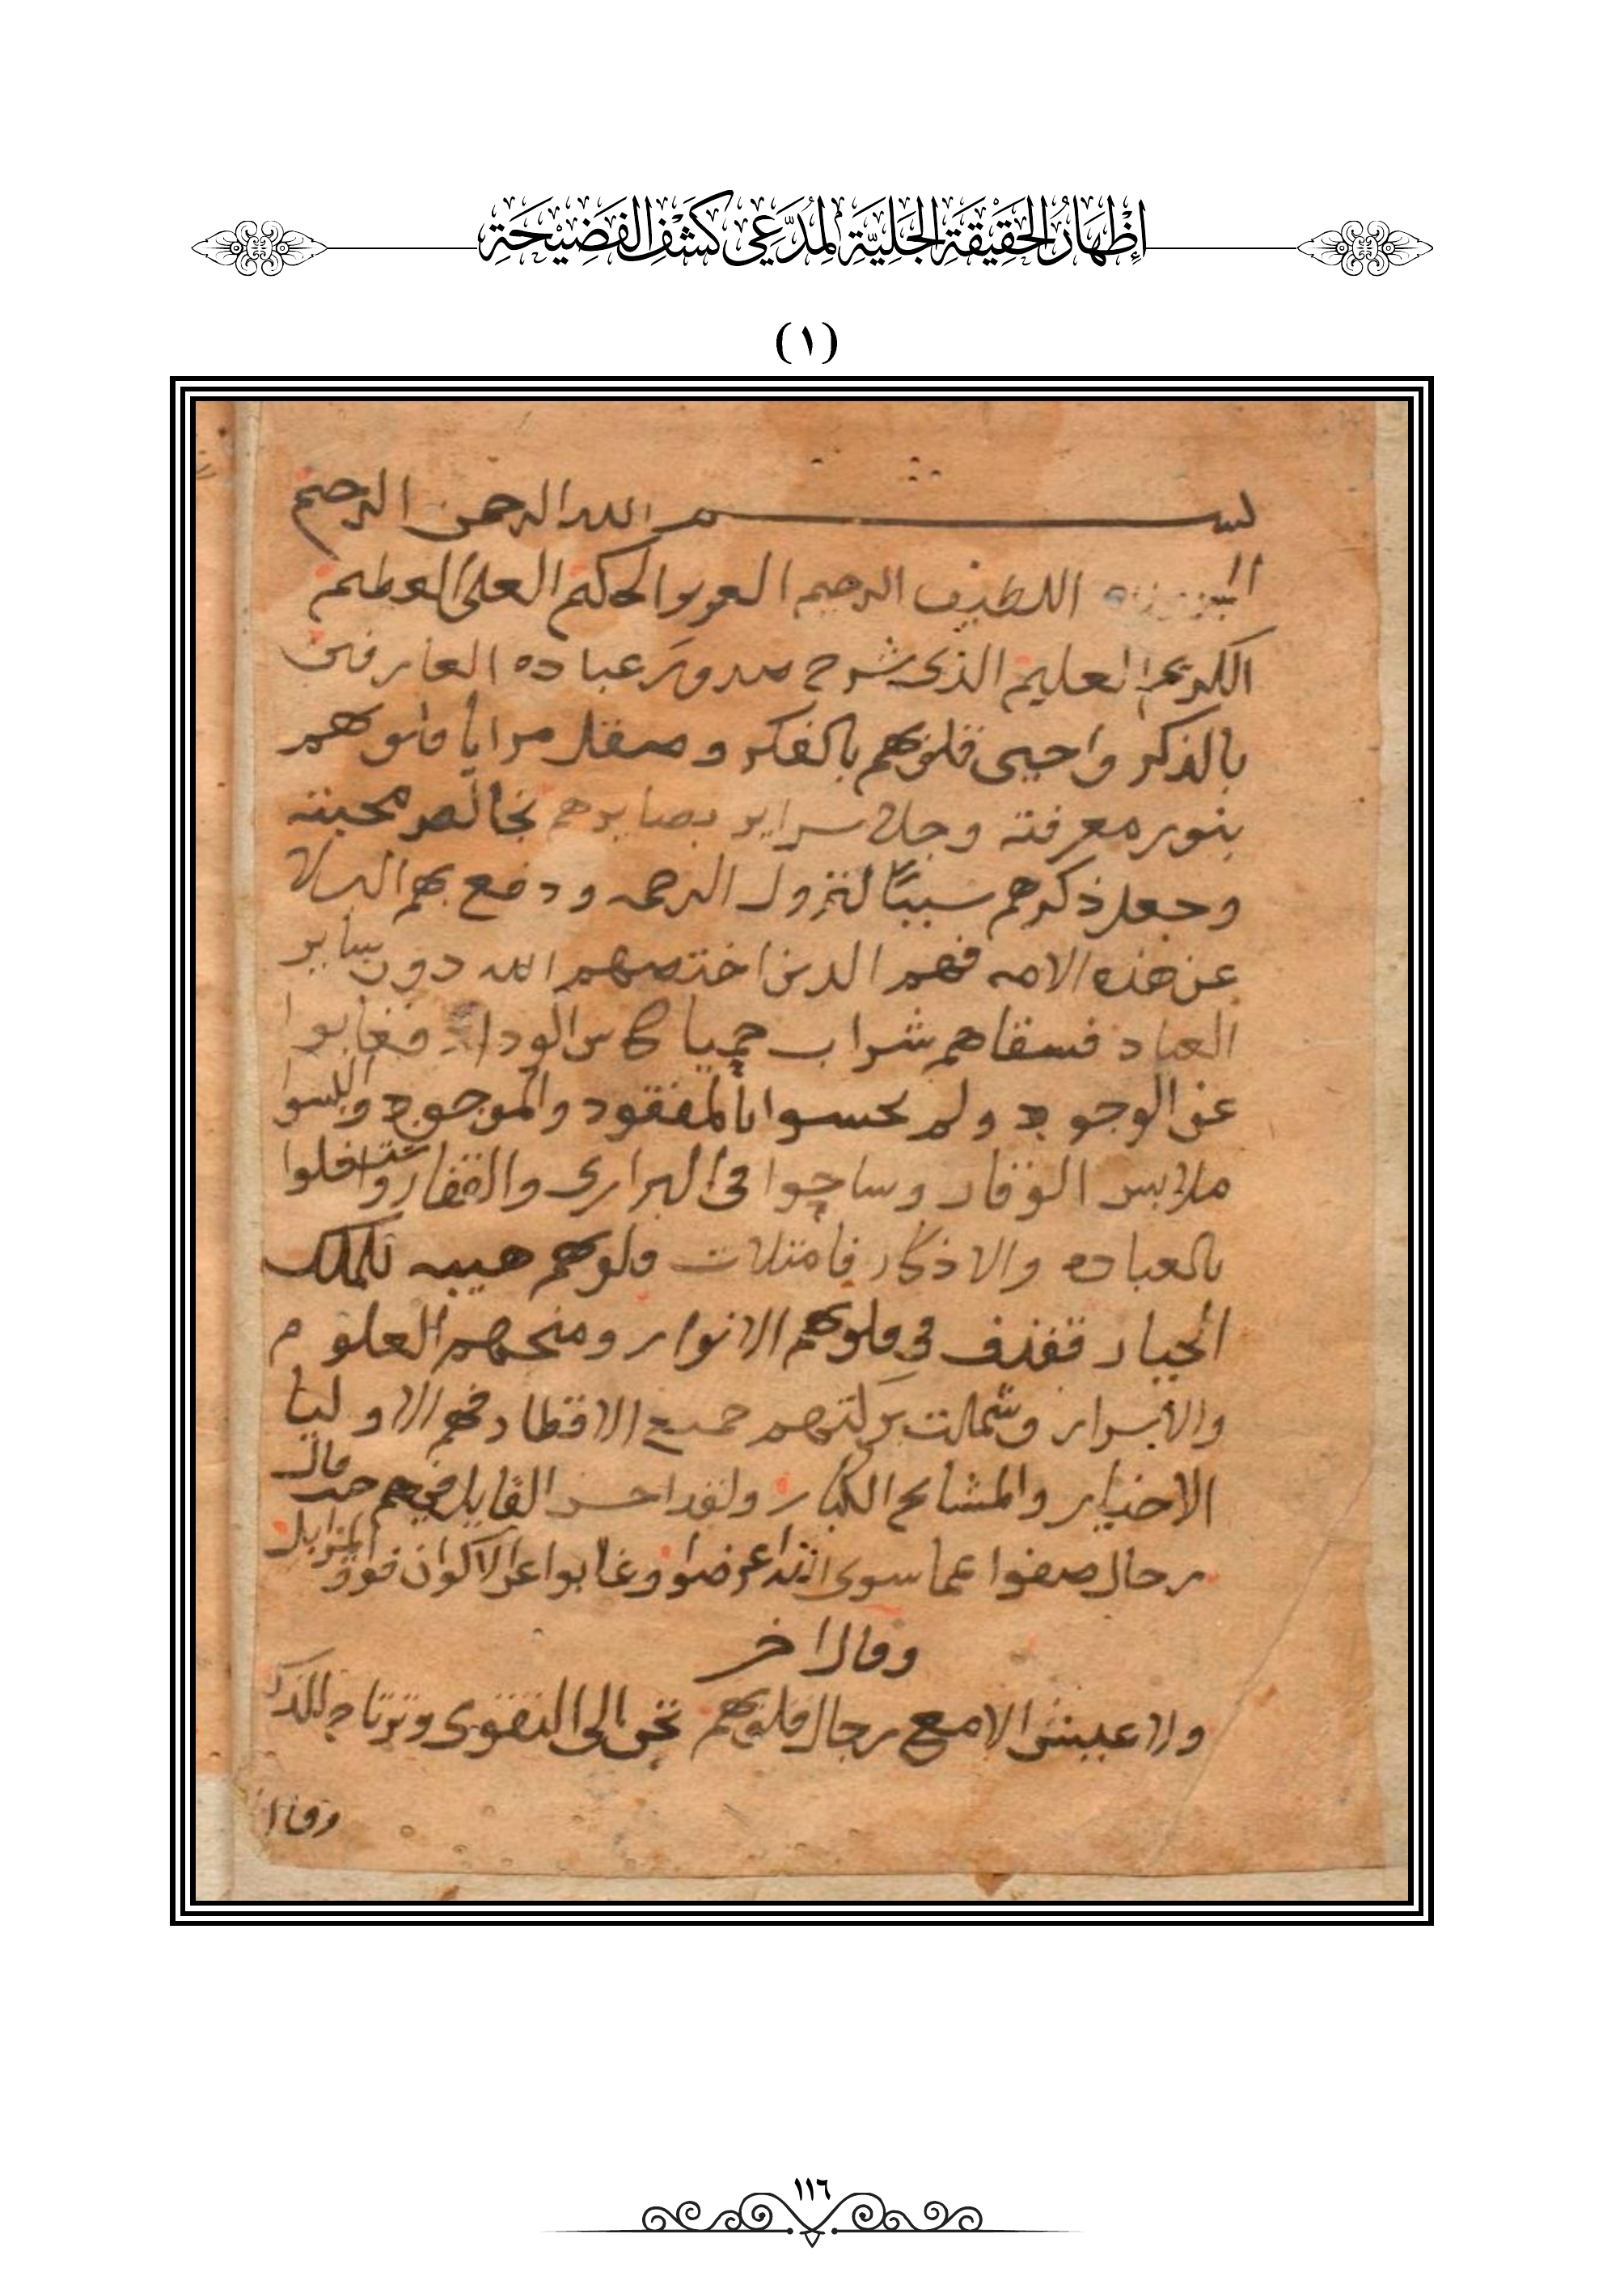 إِظْهَارُ الحَقِيْقَةِ الجَلِيَّةِ لِمُدَّعِي كَشْفِ الفَضِيْحَةِ
(١)
بسم الله الرحمن الرحيم
اللطيف الرحيم العزيز الحكيم العلى العظيم
الكريم العليم الذى شرح صدور عباده العارفين
بالذكر واحيى قلوبهم بالفكر وصقل مرايا قلوبهم
بنور معرفته وجلا سراير بصايرهم بخالص محبته
وجعل ذكرهم سببًا لنزول الرحمه ودفع بهم البلا
عن هذه الامه فهم الذين اختصهم الله دون ساير
العباد فسقاهم شراب حميا كاس الوداد فغابوا
عن الوجود ولم يحسوا بالمفقود والموجود والبسوا
ملابس الوقار وساحوا فى البرارى والقفار واشتغلوا
بالعباده والاذكار فامتلات قلوبهم هيبه للملك
الجبار فقذف فى قلوبهم الانوار ومنحهم العلوم
والاسرار وشملت بركتهم جميع الاقطار فهم الاوليا
الاخيار والمشايخ الكبار ولقد احسن القايل فيهم حيث قال
رجال صفوا عما سوى الله اعرضوا وغابوا عن الاكوان فوق المزابل
وقال اخر
ولا عيش الا مع رجال قلوبهم تحن الى التقوى وترتاح للذكر
وقال
١١٦